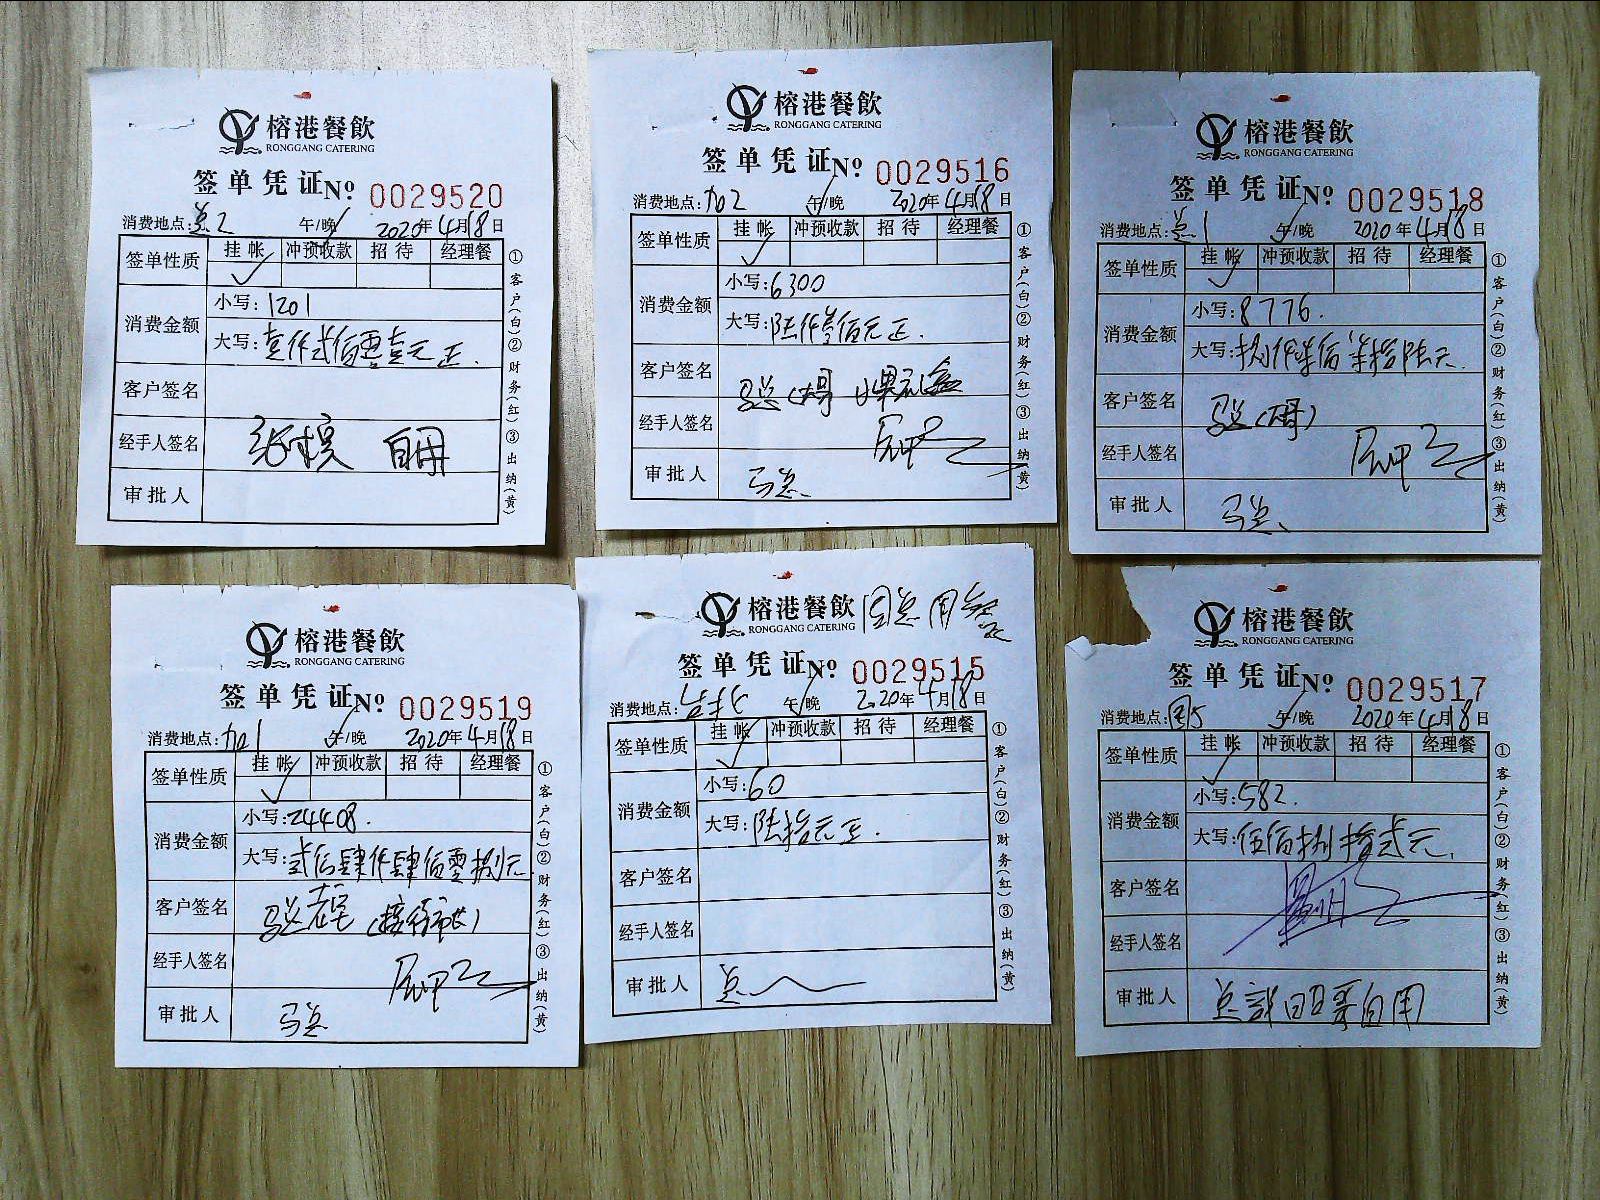 榕港餐飲
RONGGANG CATERING
签单凭证 No 0029520
消费地点: 总2 午/晚 2020年4月18日
签单性质 挂帐 冲预收款 招待 经理餐
消费金额 小写: 1201
大写: 壹仟弍佰零壹元正.
客户签名
经手人签名 自用
审批人
①客户(白)②财务(红)③出纳(黄)
榕港餐飲
RONGGANG CATERING
签单凭证 No 0029516
消费地点: 加2 午/晚 2020年4月18日
签单性质 挂帐 冲预收款 招待 经理餐
消费金额 小写: 6300
大写: 陆仟叁佰元正.
客户签名
经手人签名
审批人 马总
①客户(白)②财务(红)③出纳(黄)
榕港餐飲
RONGGANG CATERING
签单凭证 No 0029518
消费地点: 总1 午/晚 2020年4月18日
签单性质 挂帐 冲预收款 招待 经理餐
消费金额 小写: 8776.
大写: 捌仟柒佰柒拾陆元.
客户签名
经手人签名
审批人 马总
①客户(白)②财务(红)③出纳(黄)
榕港餐飲
RONGGANG CATERING
签单凭证 No 0029519
消费地点: 加1 午/晚 2020年4月18日
签单性质 挂帐 冲预收款 招待 经理餐
消费金额 小写: 24408.
大写: 肆仟肆佰零捌元
客户签名
经手人签名
审批人 马总
①客户(白)②财务(红)③出纳(黄)
榕港餐飲
RONGGANG CATERING
签单凭证 No 0029515
消费地点: 午/晚 2020年4月18日
签单性质 挂帐 冲预收款 招待 经理餐
消费金额 小写: 60
大写: 陆拾元正.
客户签名
经手人签名
审批人
①客户(白)②财务(红)③出纳(黄)
榕港餐飲
RONGGANG CATERING
签单凭证 No 0029517
消费地点: 午/晚 2020年4月18日
签单性质 挂帐 冲预收款 招待 经理餐
消费金额 小写: 582.
大写: 伍佰捌拾弍元.
客户签名
经手人签名
审批人 自用
①客户(白)②财务(红)③出纳(黄)